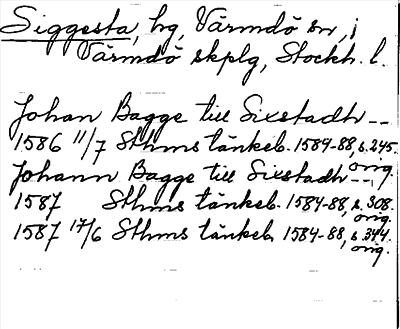 Siggesta, hg, Värmdö sn, i
Värmdö skplg, Stockh. l.
Johan Bagge till Sixstadh --
1586 11/7 Sthms tänkeb. 1584-88, s. 245.
orig.
Johann Bagge till Sixstadh --,
1587 Sthms tänkeb. 1584-88, s. 308.
orig.
1587 17/6 Sthms tänkeb. 1584-88, s. 344.
orig.